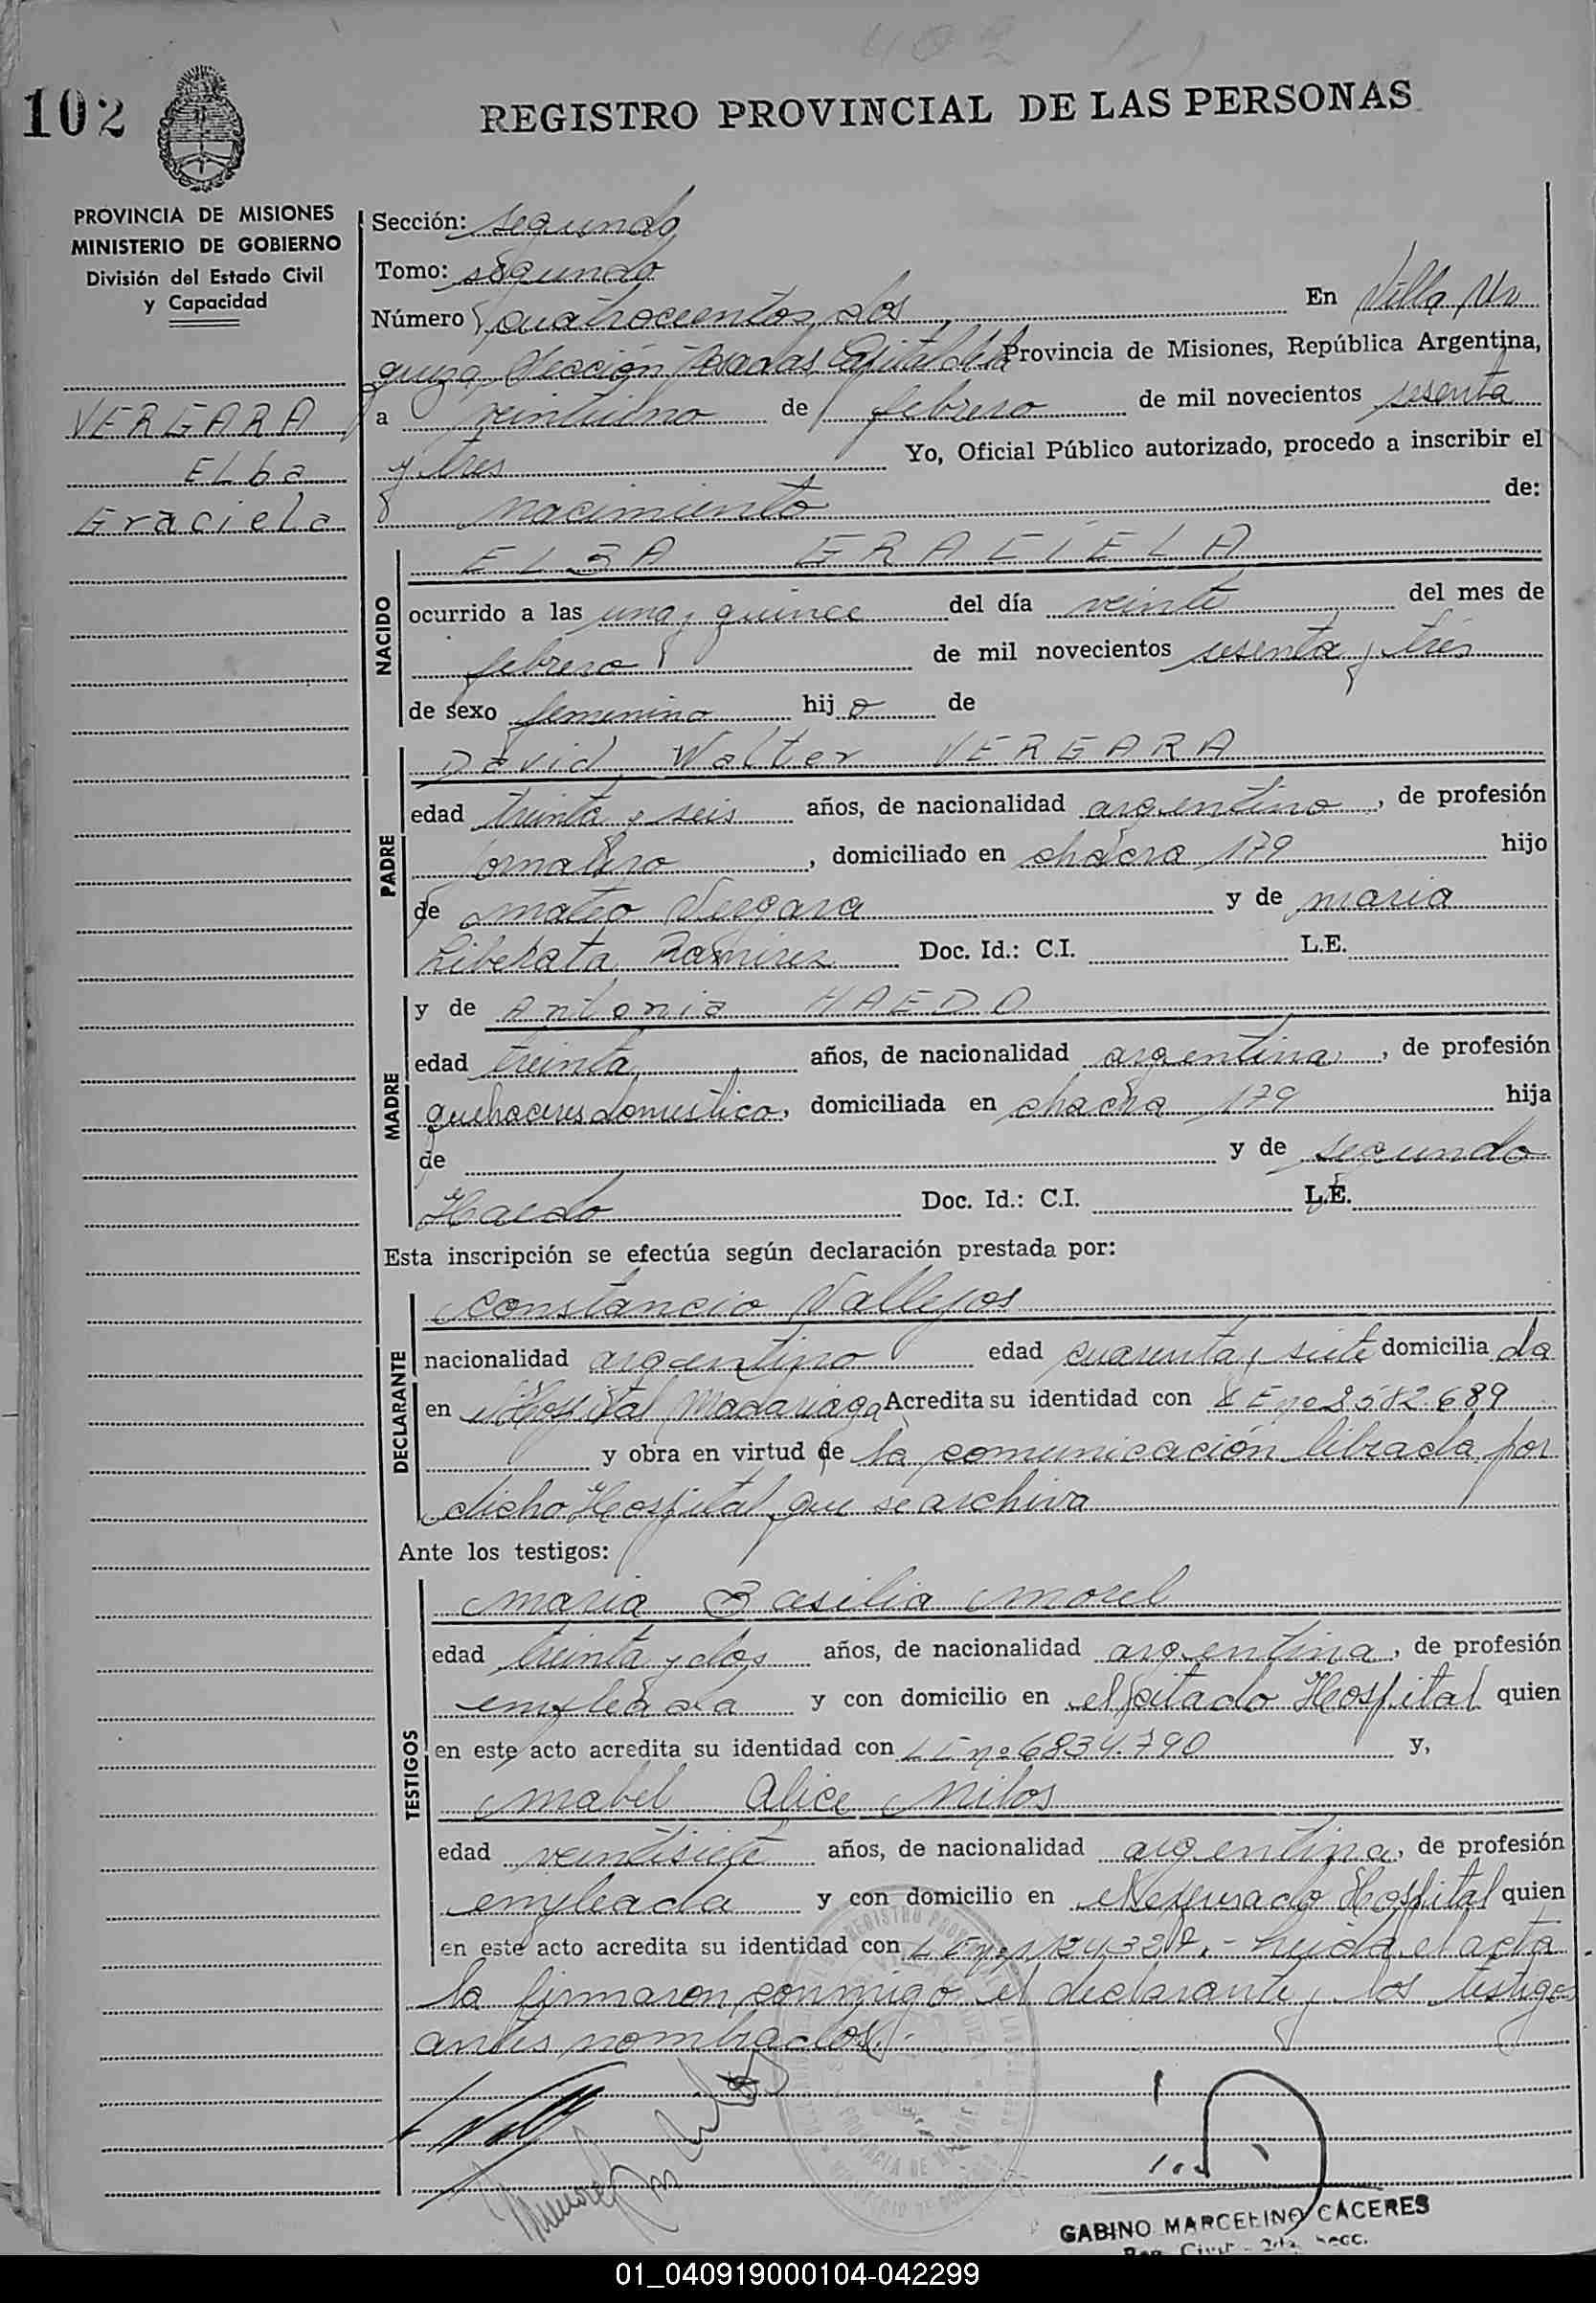 402
102
REGISTRO PROVINCIAL DE LAS PERSONAS
PROVINCIA DE MISIONES
MINISTERIO DE GOBIERNO
División del Estado Civil
y Capacidad
VERGARA
ELba
Graciela
Sección: segundo
Tomo: segundo
Número cuatrocientos dos En Villa Ur
quiza, Sección Posadas Capital de la Provincia de Misiones, República Argentina,
a veintiuno de febrero de mil novecientos sesenta
y tres Yo, Oficial Público autorizado, procedo a inscribir el
nacimiento de:
NACIDO
ELBA GRACIELA
ocurrido a las una y quince del día veinte del mes de
febrero de mil novecientos sesenta y tres
de sexo femenino hij a de
PADRE
David Walter VERGARA
edad treinta y seis años, de nacionalidad argentino, de profesión
jornalero, domiciliado en chacra 179 hijo
de mateo Vergara y de maria
Liberata Ramirez Doc. Id.: C.I. L.E.
MADRE
y de Antonia HAEDO
edad treinta años, de nacionalidad argentina, de profesión
quehaceres domestico, domiciliada en chacra 179 hija
de y de segundo
Haedo Doc. Id.: C.I. L.E.
Esta inscripción se efectúa según declaración prestada por:
DECLARANTE
Constancio Vallejos
nacionalidad argentino edad cuarenta y siete domicilia da
en Hospital Madariaga Acredita su identidad con L E nº 2582.689
y obra en virtud de la comunicación librada por
dicho Hospital que se archiva
Ante los testigos:
TESTIGOS
maria Basilia morel
edad treinta y dos años, de nacionalidad argentina, de profesión
empleada y con domicilio en el citado Hospital quien
en este acto acredita su identidad con L E nº 6834.790 y,
mabel Alice
edad veintisiete años, de nacionalidad argentina, de profesión
empleada y con domicilio en el expresado Hospital quien
en este acto acredita su identidad con L E nº .- leida el acta
la firmaron conmigo el declarante y los testigos
antes nombrados.
GABINO MARCELINO CACERES
Reg. Civil - 2da. Secc.
01_040919000104-042299